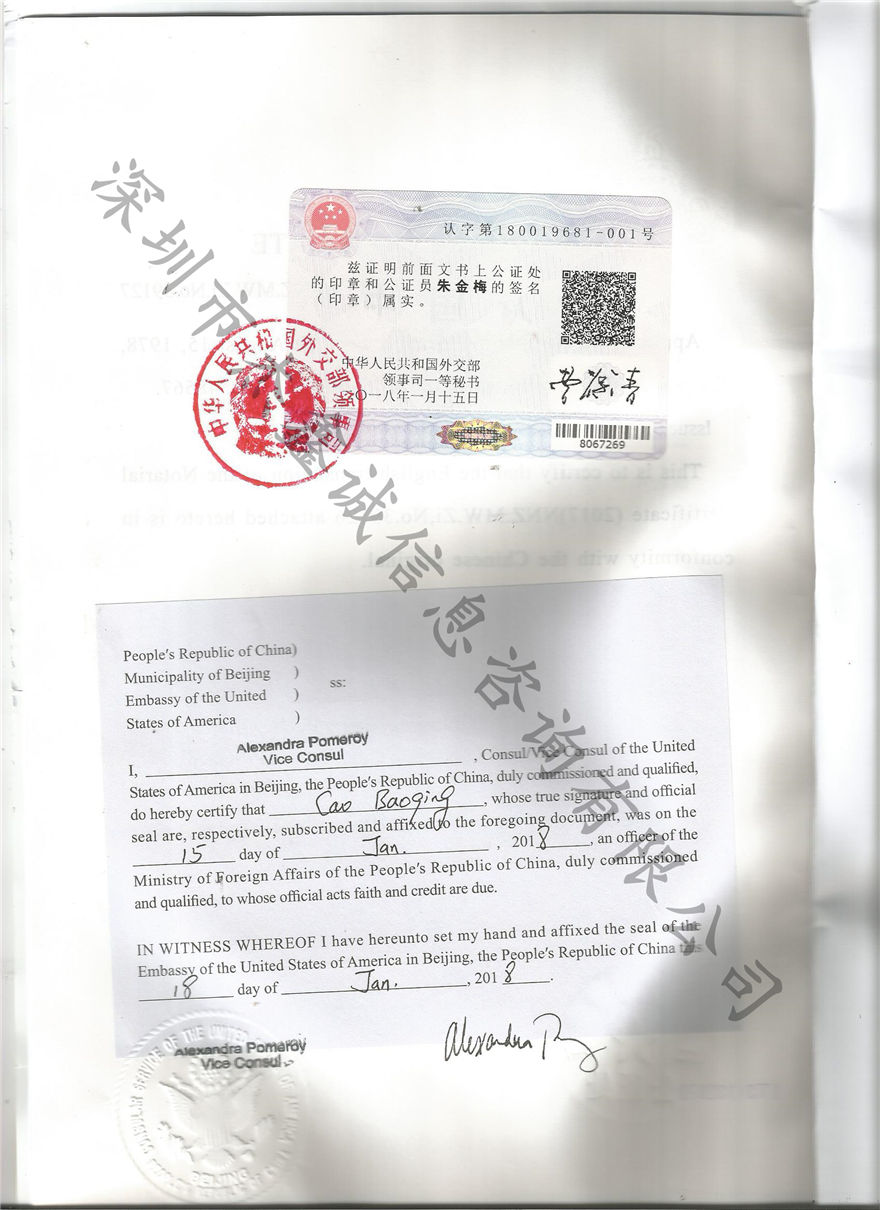 认字第180019681-001号
兹证明前面文书上公证处
的印章和公证员朱金梅的签名
（印章）属实。
中华人民共和国外交部
领事司一等秘书
二〇一八年一月十五日
8067269
中华人民共和国外交部领事司
深圳市 鑫诚信息咨询有限公司
People's Republic of China)
Municipality of Beijing )
Embassy of the United ) ss:
States of America )
Alexandra Pomeroy
Vice Consul
I, , Consul/Vice Consul of the United
States of America in Beijing, the People's Republic of China, duly commissioned and qualified,
do hereby certify that Cao Baoqing, whose true signature and official
seal are, respectively, subscribed and affixed to the foregoing document, was on the
15 day of Jan. , 2018, an officer of the
Ministry of Foreign Affairs of the People's Republic of China, duly commissioned
and qualified, to whose official acts faith and credit are due.
IN WITNESS WHEREOF I have hereunto set my hand and affixed the seal of the
Embassy of the United States of America in Beijing, the People's Republic of China this
18 day of Jan. , 2018.
Alexandra Pomeroy
Vice Consul
CONSULAR SERVICE OF THE UNITED STATES OF AMERICA
BEIJING